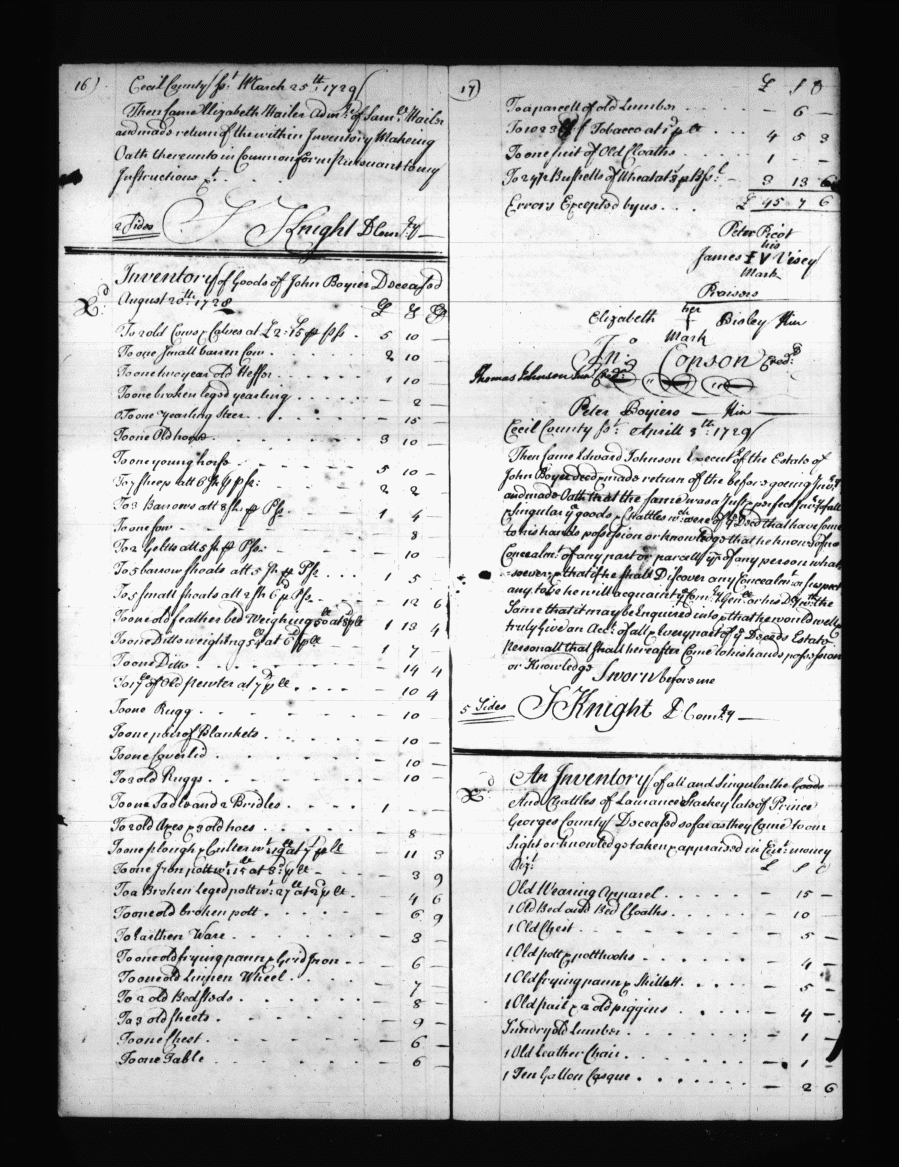 16)
Cecil County ss.t March 25th. 1729
Then Came Elizabeth Wailer Adm.x of Sam.ll Wailer
and made return of the within Inventory Makeing
Oath thereunto in Common form pursuant to my
Instructions
2 Sides S Knight D Com.ry
Inventory of Goods of John Boyer Deceased
August 20th: 1728 £ S D
To 2 old Cows & Calves at £2:15 p ps . 5 10 —
To one Small barren Cow . 2 10
To one two year old Heffer . 1 10
To one broken legod yearling . — 2 —
To one yearling Steer . — 15 —
To one Old horse . 3 10 —
To one young horse . 5 10 —
To 7 Sheep att 6 sh p ps: 2 2 —
To 3 Barrows att 8 sh p Ps . — 1 4 —
To one Sow — 8
To 2 Gelts att 5 sh p Ps: — 10 —
To 5 barrow Shoats att 5 sh p Ps . 1 5
To 5 Small Shoats att 2 sh 6 p Ps . 12 6
To one old feather bed Weighing 50 at 1 8 4
To one Ditto weighting 54 at 6 p lb 1 7 —
To one Ditto . — 14 4
To 17 of Old pewter at 7 p lb . — 10 4
To one Rugg . — 10 —
To one pair of Blankets . — 10 —
To one Coverlid — 10 —
To 2 old Ruggs . — 10 —
To one Sadle and 2 Bridles . 1 — —
To 2 old Axes & 3 old hoes . — 8 —
To one plough & Coulter w.t 19 at 7 p lb — 11 3
To one Iron pott w.t 15 at 3 p lb — 3 9
To a Broken Leged pott w.t 27 at 2 p lb — 4 6
To one old broken pott . — 6 9
To Earthen Ware . — 3 —
To one old frying pann & Gridiron — 6 —
To one old Linnen Wheel . — 7 —
To 2 old Bedsteds . — 8 —
To 3 old Sheets . — 9 —
To one Chest . — 6 —
To one Table . — 6 —
17)
£ S D
To a parcell of old Lumber . — 6 —
To 1023 of Tobacco at 1 p lb . 4 5 3
To one Suit of Old Cloaths . 1 — —
To 24½ Bushells of Wheat at 3 p Bs. — 3 13 6
Errors Excepted by us . £ 45 7 6
Peter Picot
his
James V Visey
Mark
Praisers
her
Elizabeth Bisley Kin
Mark
Jn:o Copson Cred:r
Thomas Johnson Jun.r Cred.r
Peter Boyiero — Kin
Cecil County ss.t Aprill 3th: 1729
Then Came Edward Johnson Execut.r of the Estate of
John Boyer deced & made return of the before going Inv.ry
and made Oath that the same was a Just & perfect Inv.ry of all
& Singular y.e goods & Chattles w.ch were of y.e Deced that have come
to his hands possession or knowledge that he knows of no
Concealm.t of any part or parcell y.r of by any person what
soever & that if he shall Discover any Concealm.t or Suspect
any to be he will acquaint y.e Com.ry Gen.ll or his D.ty w.th the
Same that it may be Enquired into & that he would well &
truly Give an Acc.t of all & Every part of y.e Deceds Estate
personall that shall hereafter Come to his hands possession
or Knowledge Sworn before me
5 Sides S Knight D Com.ry
An Inventory of all and Singular the Goods
And Chattles of Lawrance Starkey late of Prince
Georges County Deceased so far as they Came to our
Sight or knowledge taken & appraised in Curr.t money
Viz.t £ S D
Old Wearing Apparel . — 15 —
1 Old Bed and Bed Cloaths . — 10 —
1 Old Chest . — 5 —
1 Old pott & potthooks . — 4 —
1 Old frying pann & Skillett . — 5 —
1 Old pail & 2 old piggins . — 4 —
Sundry old Lumber . — 1 —
1 Old Leather Chair . — 1 —
1 Ten Gallon Casque . — 2 6